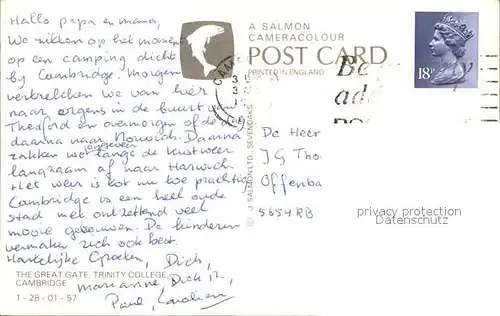 Hallo papa en mama,
We zitten op het moment
op een camping dicht
by Cambridge. Morgen
vertrekken we van hier
naar ergens in de buurt van
Thetford en overmorgen of de dag
daarna naar Norwich. Daarna
zakken we ongeveer langs de kustweer
langzaam af naar Harwich
Het weer is tot nu toe prachtig
Cambridge is een heel oude
stad met ontzettend veel
mooie gebouwen. De kinderen
vermaken zich ook best.
Hartelijke Groeten, Dick,
Marianne, Dick jr,
Paul,
THE GREAT GATE, TRINITY COLLEGE,
CAMBRIDGE
1-28-01-57
A SALMON
CAMERACOLOUR
POST CARD
PRINTED IN ENGLAND
© J. SALMON LTD., SEVENOAKS
CAM
Be
ad
18P
De Heer
JG Tho
Offenba
5654 RB
privacy protection
oldthing.com